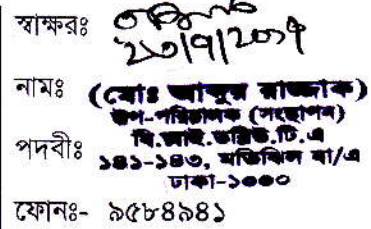 স্বাক্ষরঃ
২৩/৭/২০১৭
নামঃ (মোঃ আবুর রাজ্জাক)
উপ-পরিচালক (সংস্থাপন)
পদবীঃ বি.আই.ডব্লিউ.টি.এ
১৪১-১৪৩, মতিঝিল বা/এ
ঢাকা-১০০০
ফোনঃ- ৯৫৮৪৯৪১